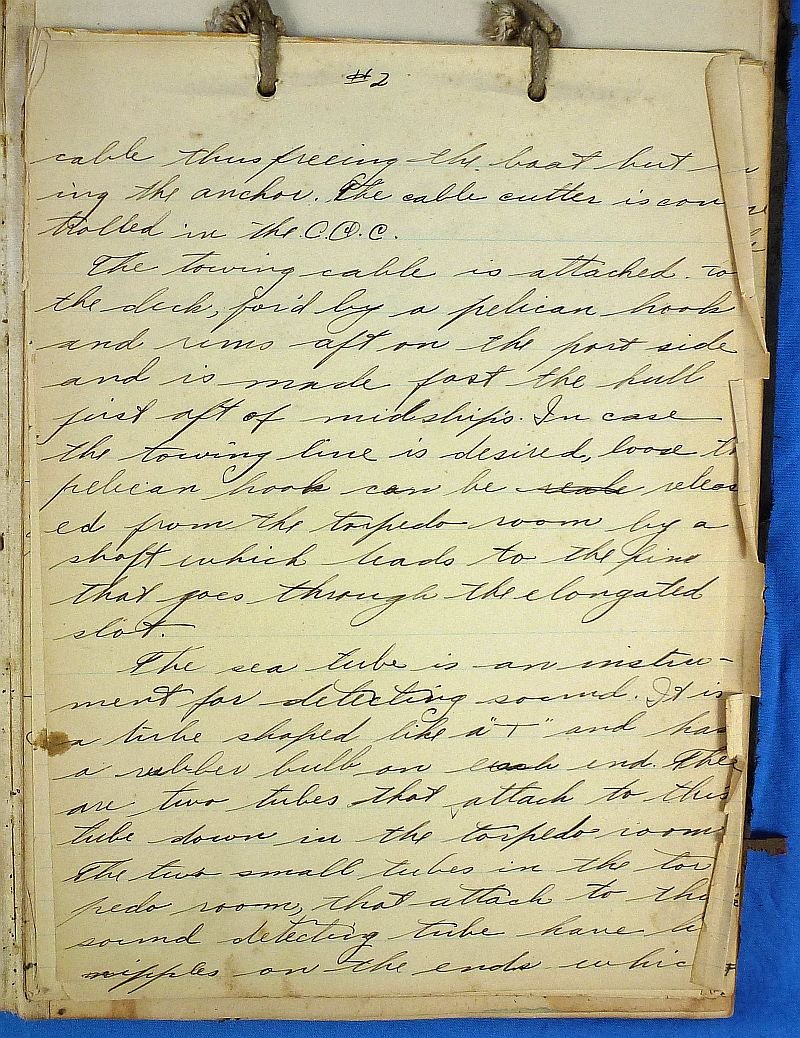 #2
cable thus freeing the boat but
ing the anchor. The cable cutter is con
trolled in the C.O.C.
The towing cable is attached to
the deck, for'd by a pelican hook
and runs aft on the port side
and is made fast the hull
just aft of midships. In case
the towing line is desired, loose th
pelican hook can be releas
ed from the torpedo room by a
shaft which leads to the pin
that goes through the elongated
slot.
The sea tube is an instru-
ment for detecting sound. It is
a tube shaped like a "T" and has
a rubber bulb on each end. Ther
are two tubes that attach to this
tube down in the torpedo room
The two small tubes in the tor
pedo room, that attach to the
sound detecting tube have
nipples on the ends whic